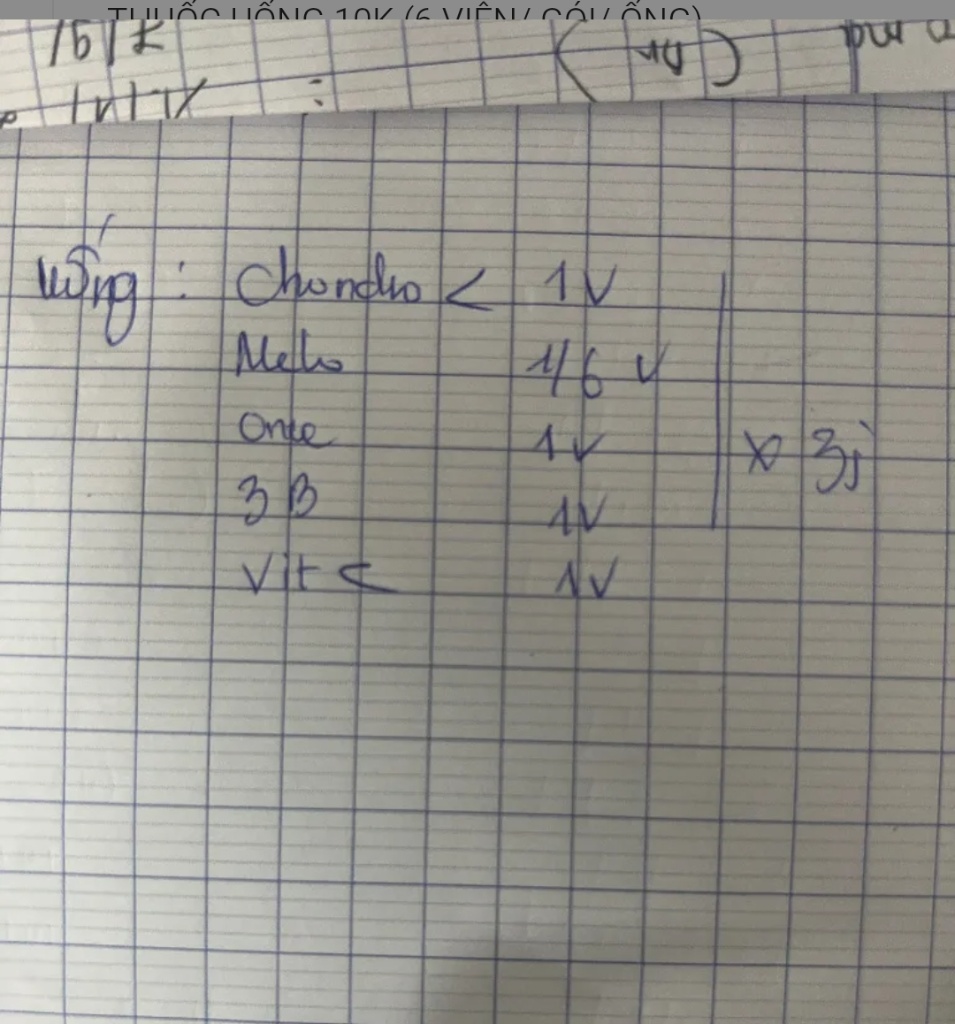 THUỐC UỐNG 10K (6 VIÊN/ GÓI/ ỐNG)
uống : Chondro < 1V
Melo 1/6 V
Ome 1V
3B 1V
Vit C 1V
x 3j